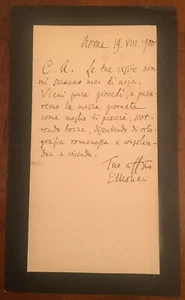 Roma 19. VIII. 900
C. A. Le tue visite non
mi saranno mai di noja.
Vieni pure giovedì, e passe
remo la nostra giornata
come meglio ti piacerà, scor
rendo bozze, disputando di orto
grafia romanesca e consolan
doci a vicenda.
Tuo aff.mo
EMonaci